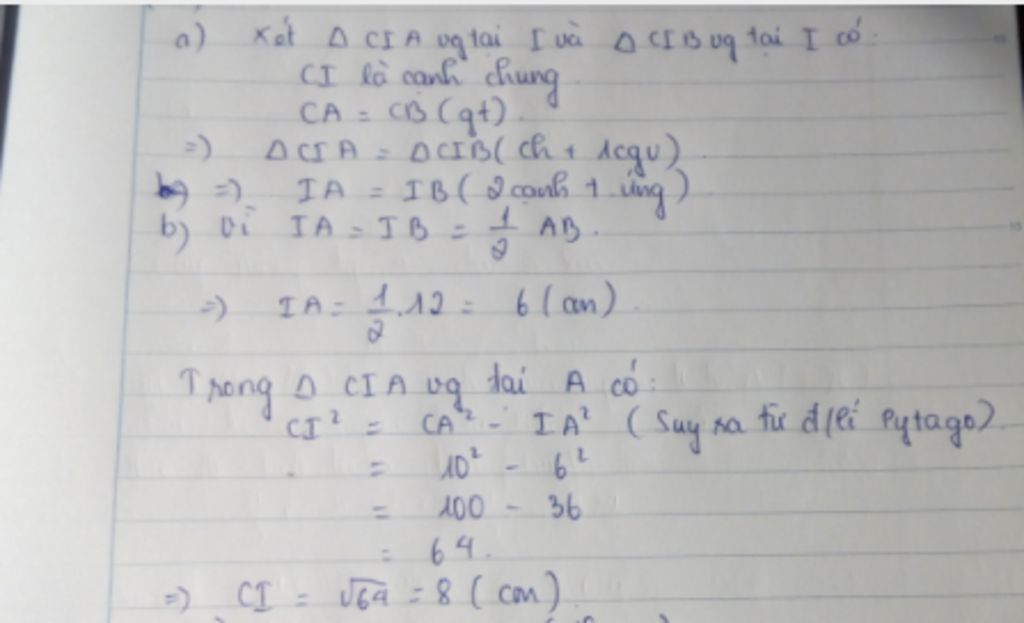 a) Xét Δ CIA vg tại I và Δ CIB vg tại I có:
CI là cạnh chung
CA = CB (gt).
=) Δ CIA = Δ CIB (ch + 1cgv).
=) IA = IB (2 cạnh t ứng)
b) Vì IA = IB = 1/2 AB.
=) IA = 1/2 . 12 = 6 (cm).
Trong Δ CIA vg tại A có:
CI² = CA² - IA² (Suy ra từ đ/lí Pytago).
= 10² - 6²
= 100 - 36
= 64.
=) CI = √64 = 8 (cm)